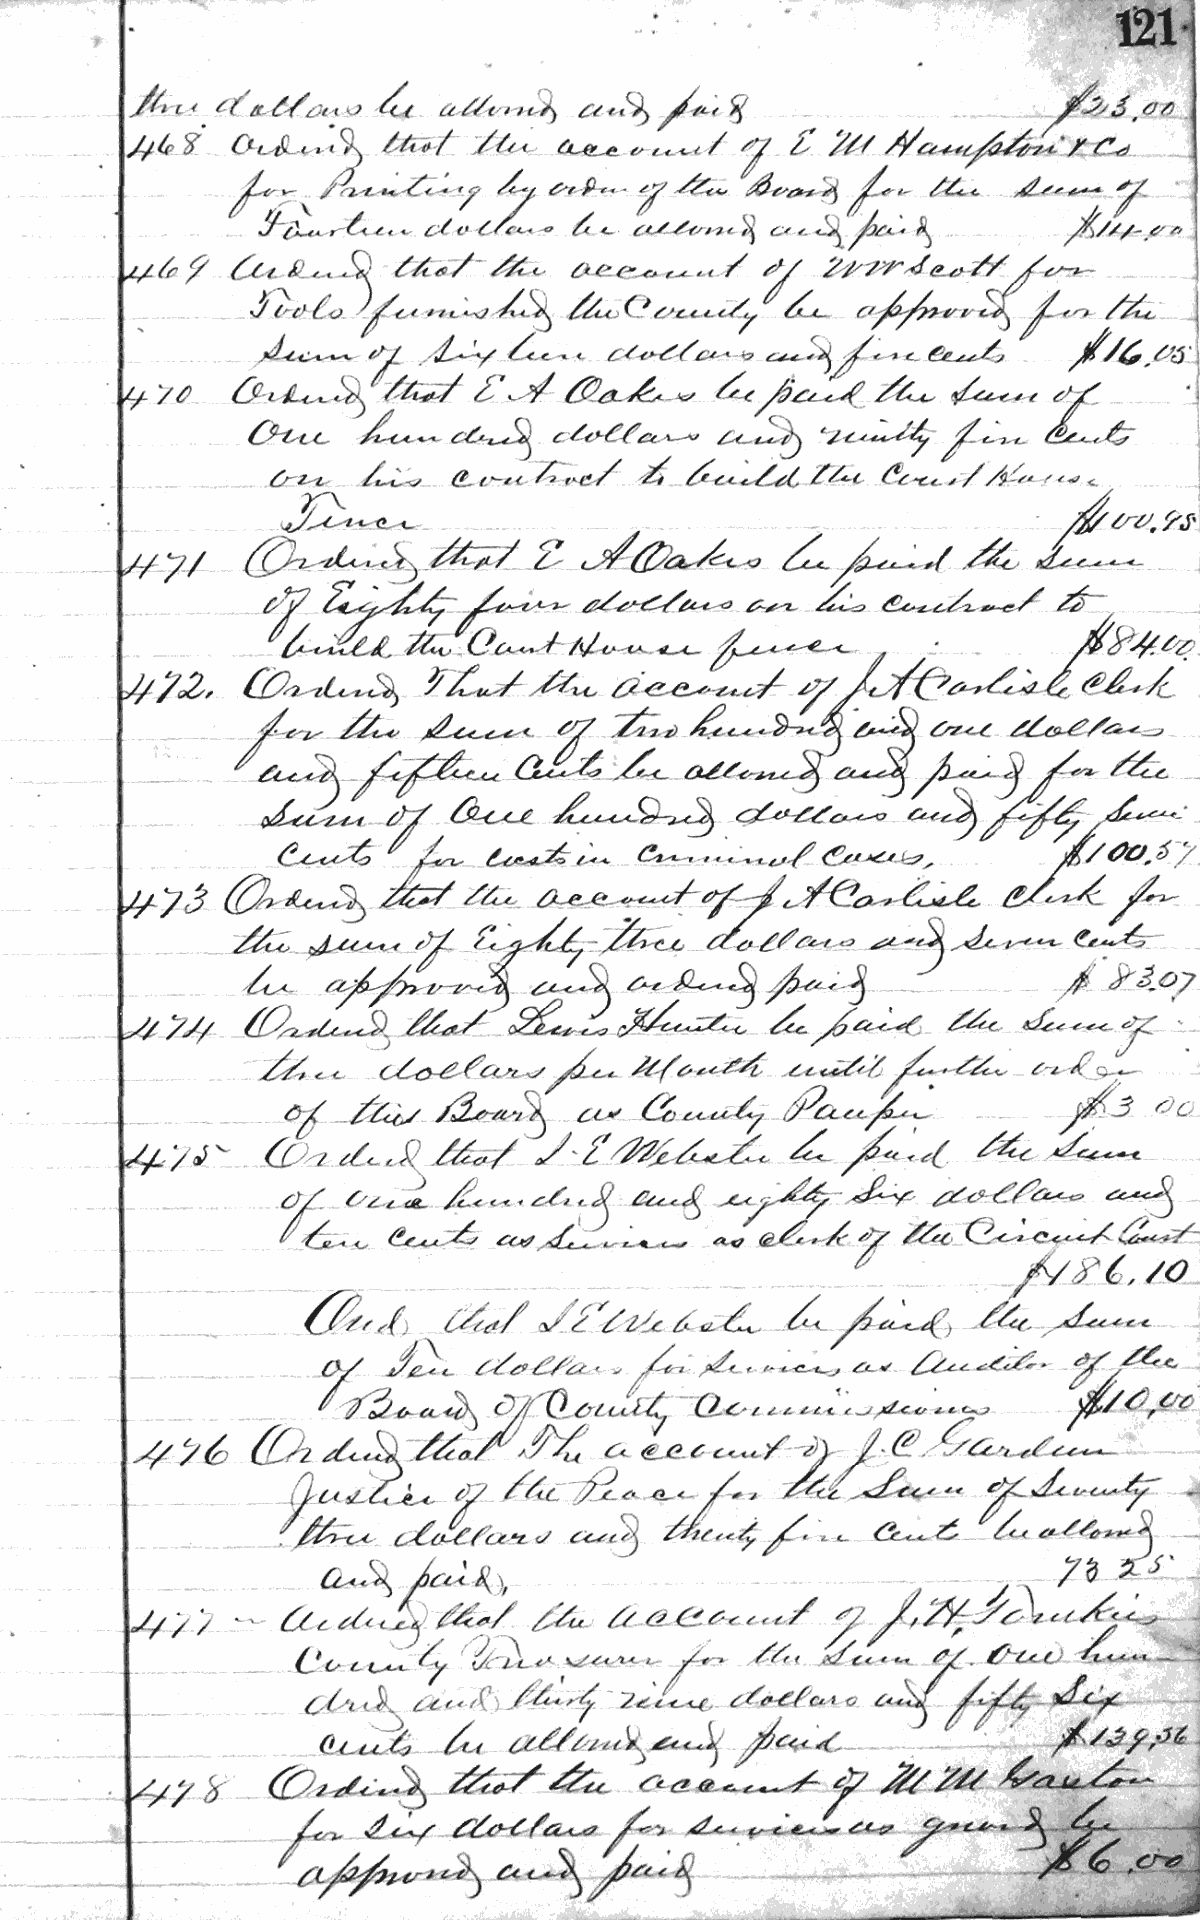 121
three dollars be allowed and paid $23.00
468 Ordered that the account of E M Hampton & Co
for Printing by order of the Board for the sum of
Fourteen dollars be allowed and paid $14.00
469 Ordered that the account of W W Scott for
Tools furnished the County be approved for the
sum of sixteen dollars and five cents $16.05
470 Ordered that E A Oakes be paid the sum of
One hundred dollars and ninety five cents
on his contract to build the Court House
Fence $100.95
471 Ordered that E A Oakes be paid the sum
of Eighty four dollars on his contract to
build the Court House fence $84.00
472. Ordered That the account of J A Carlisle Clerk
for the sum of two hundred and one dollars
and fifteen Cents be allowed and paid for the
sum of One hundred dollars and fifty seven
cents for costs in Criminal Cases. $100.57
473 Ordered that the account of J A Carlisle Clerk for
the sum of Eighty three dollars and seven cents
be approved and ordered paid $83.07
474 Ordered that Lewis Hunter be paid the sum of
three dollars per Month until further order
of this Board as County Pauper $3 00
475 Ordered that I E Webster be paid the sum
of one hundred and eighty six dollars and
ten cents as services as clerk of the Circuit Court
$186.10
And that I E Webster be paid the sum
of Ten dollars for services as Auditor of the
Board of County Commissioners $10.00
476 Ordered that The account of J. C.
Justice of the Peace for the Sum of Seventy
three dollars and twenty five cents be allowed
and paid, 73 25
477 Ordered that the account of J. H. Tomkies
County Treasurer for the sum of one hun
dred and thirty nine dollars and fifty Six
cents be allowed and paid $139.56
478 Ordered that the account of M M
for six dollars for services as guard be
approved and paid $6.00